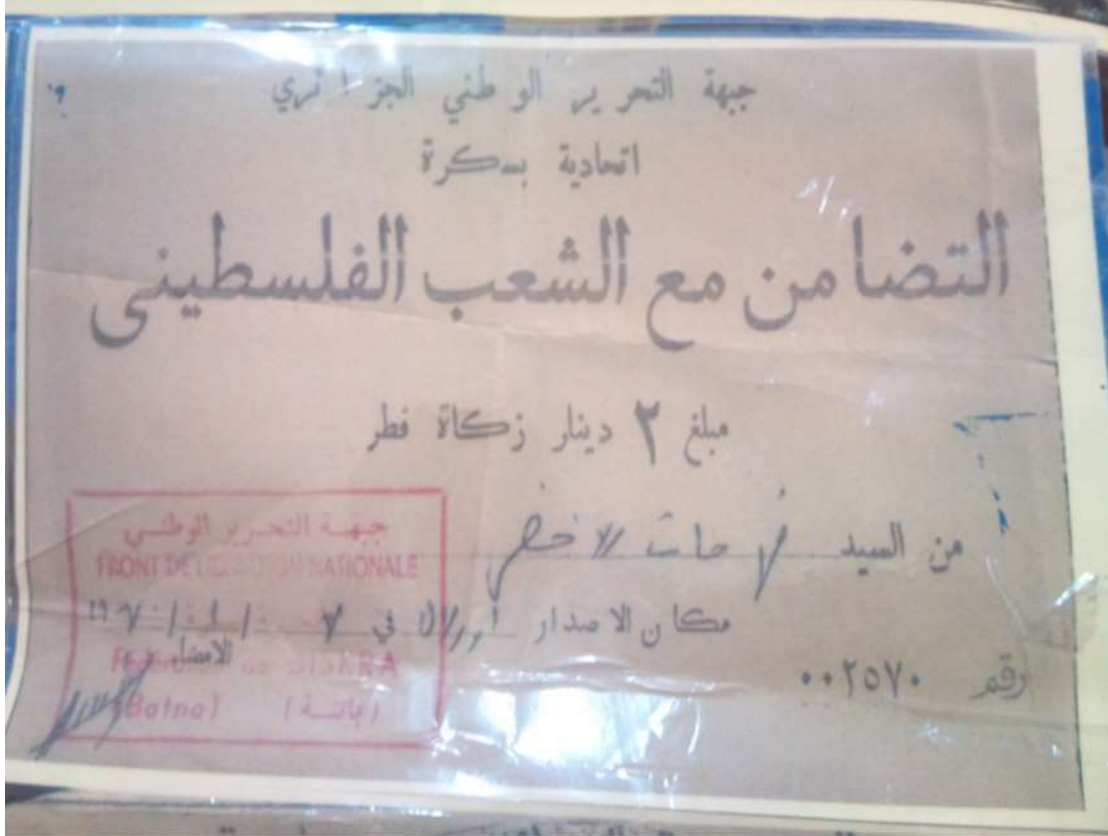 جبهة التحرير الوطني الجزائري
اتحادية بسكرة
التضامن مع الشعب الفلسطيني
مبلغ ٢ دينار زكاة فطر
من السيد فرحات الاخضر
مكان الاصدار في
الامضاء
رقم ٠٠٢٥٧٠
جبهة التحرير الوطني
FRONT DE LIBERATION NATIONALE
de BISKRA
(Batna) (باتنة)